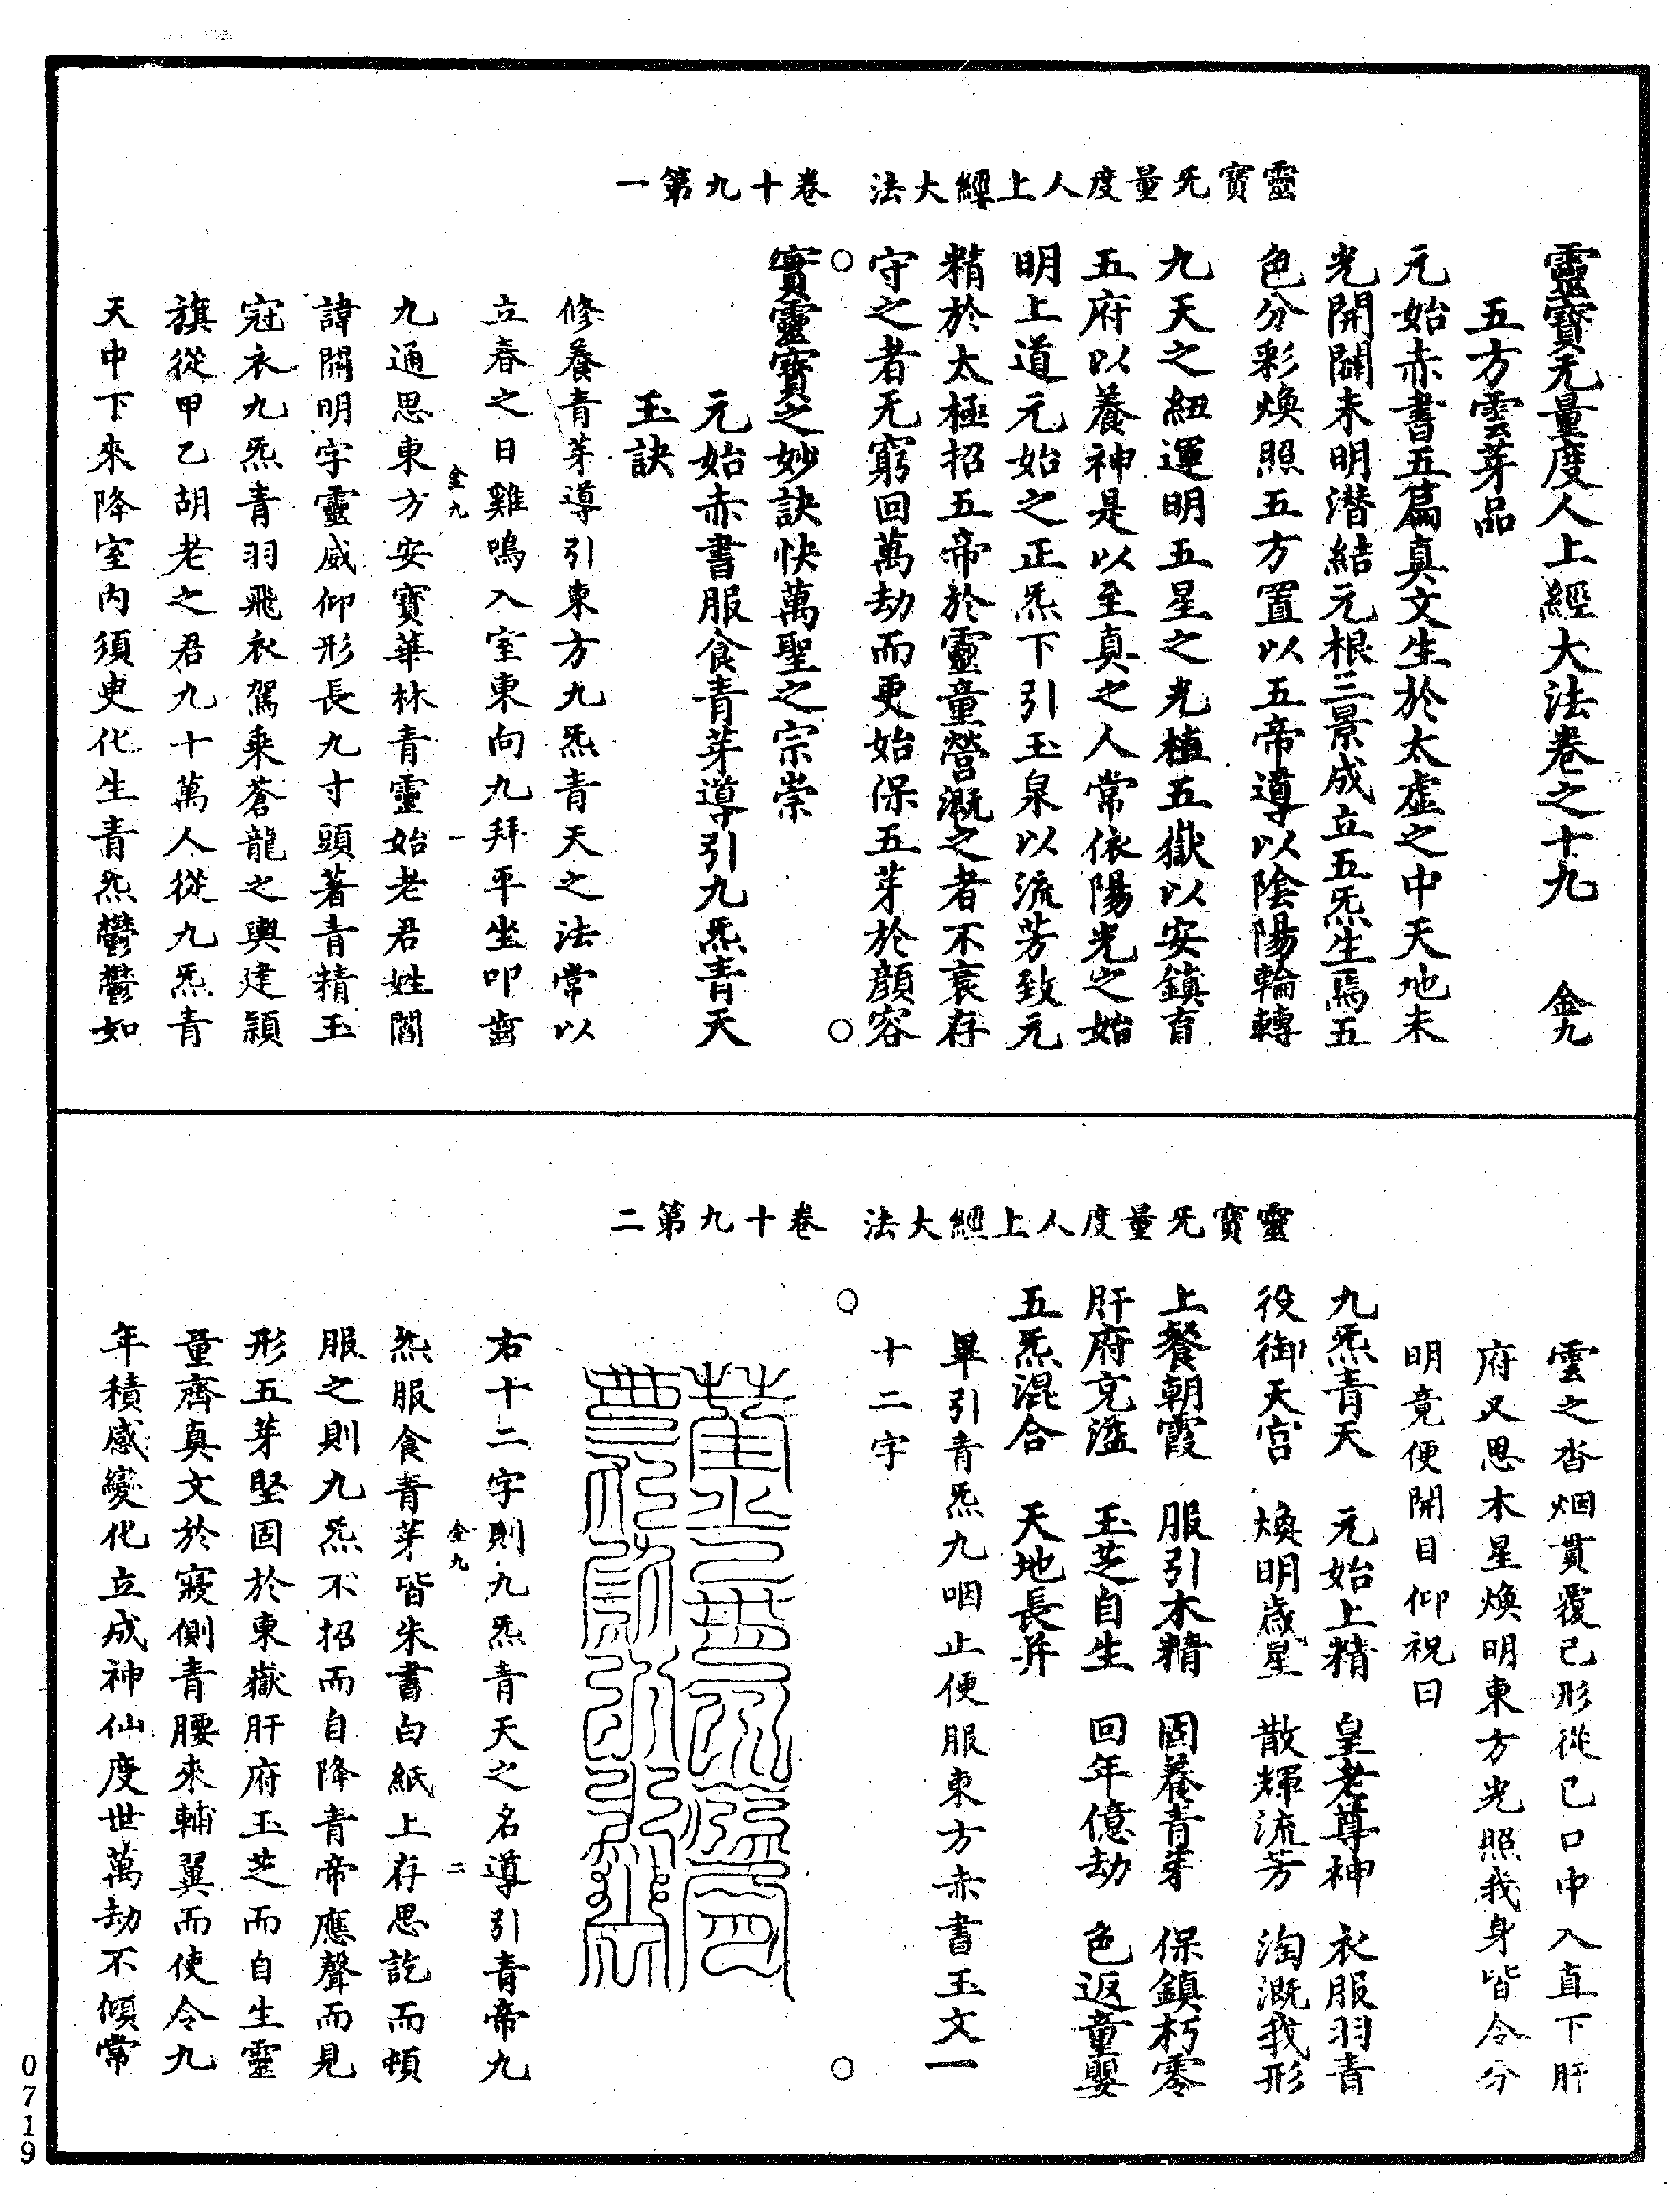 靈寶无量度人上經大法　卷十九第一
靈寶无量度人上經大法卷之十九　金九
五方雲芽品
元始赤書五篇真文生於太虛之中天地未
光開闢未明潛結元根三景成立五炁生焉五
色分彩煥照五方置以五帝導以陰陽輪轉
九天之紐運明五星之光植五嶽以安鎮育
五府以養神是以至真之人常依陽光之始
明上道元始之正炁下引玉泉以流芳致元
精於太極招五帝於靈童營溉之者不衰存
守之者无窮回萬劫而更始保五芽於顏容
實靈寶之妙訣快萬聖之宗崇
元始赤書服食青芽導引九炁青天
玉訣
修養青芽導引東方九炁青天之法常以
立春之日雞鳴入室東向九拜平坐叩齒
金九　一
九通思東方安寶華林青靈始老君姓閻
諱開明字靈威仰形長九寸頭著青精玉
冠衣九炁青羽飛衣駕乘蒼龍之輿建穎
旗從甲乙胡老之君九十萬人從九炁青
天中下來降室內須臾化生青炁鬱鬱如
靈寶无量度人上經大法　卷十九第二
雲之沓烟貫覆己形從己口中入直下肝
府又思木星煥明東方光照我身皆令分
明竟便開目仰祝曰
九炁青天　元始上精　皇老尊神　衣服羽青
役御天宮　煥明歲星　散輝流芳　淘溉我形
上餐朝霞　服引木精　固養青芽　保鎮朽零
肝府充溢　玉芝自生　回年億劫　色返童嬰
五炁混合　天地長并
畢引青炁九咽止便服東方赤書玉文一
十二字
右十二字則九炁青天之名導引青帝九
金九　二
炁服食青芽皆朱書白紙上存思訖而頓
服之則九炁不招而自降青帝應聲而見
形五芽堅固於東嶽肝府玉芝而自生靈
童齊真文於寢側青腰來輔翼而使令九
年積感變化立成神仙度世萬劫不傾常
0719